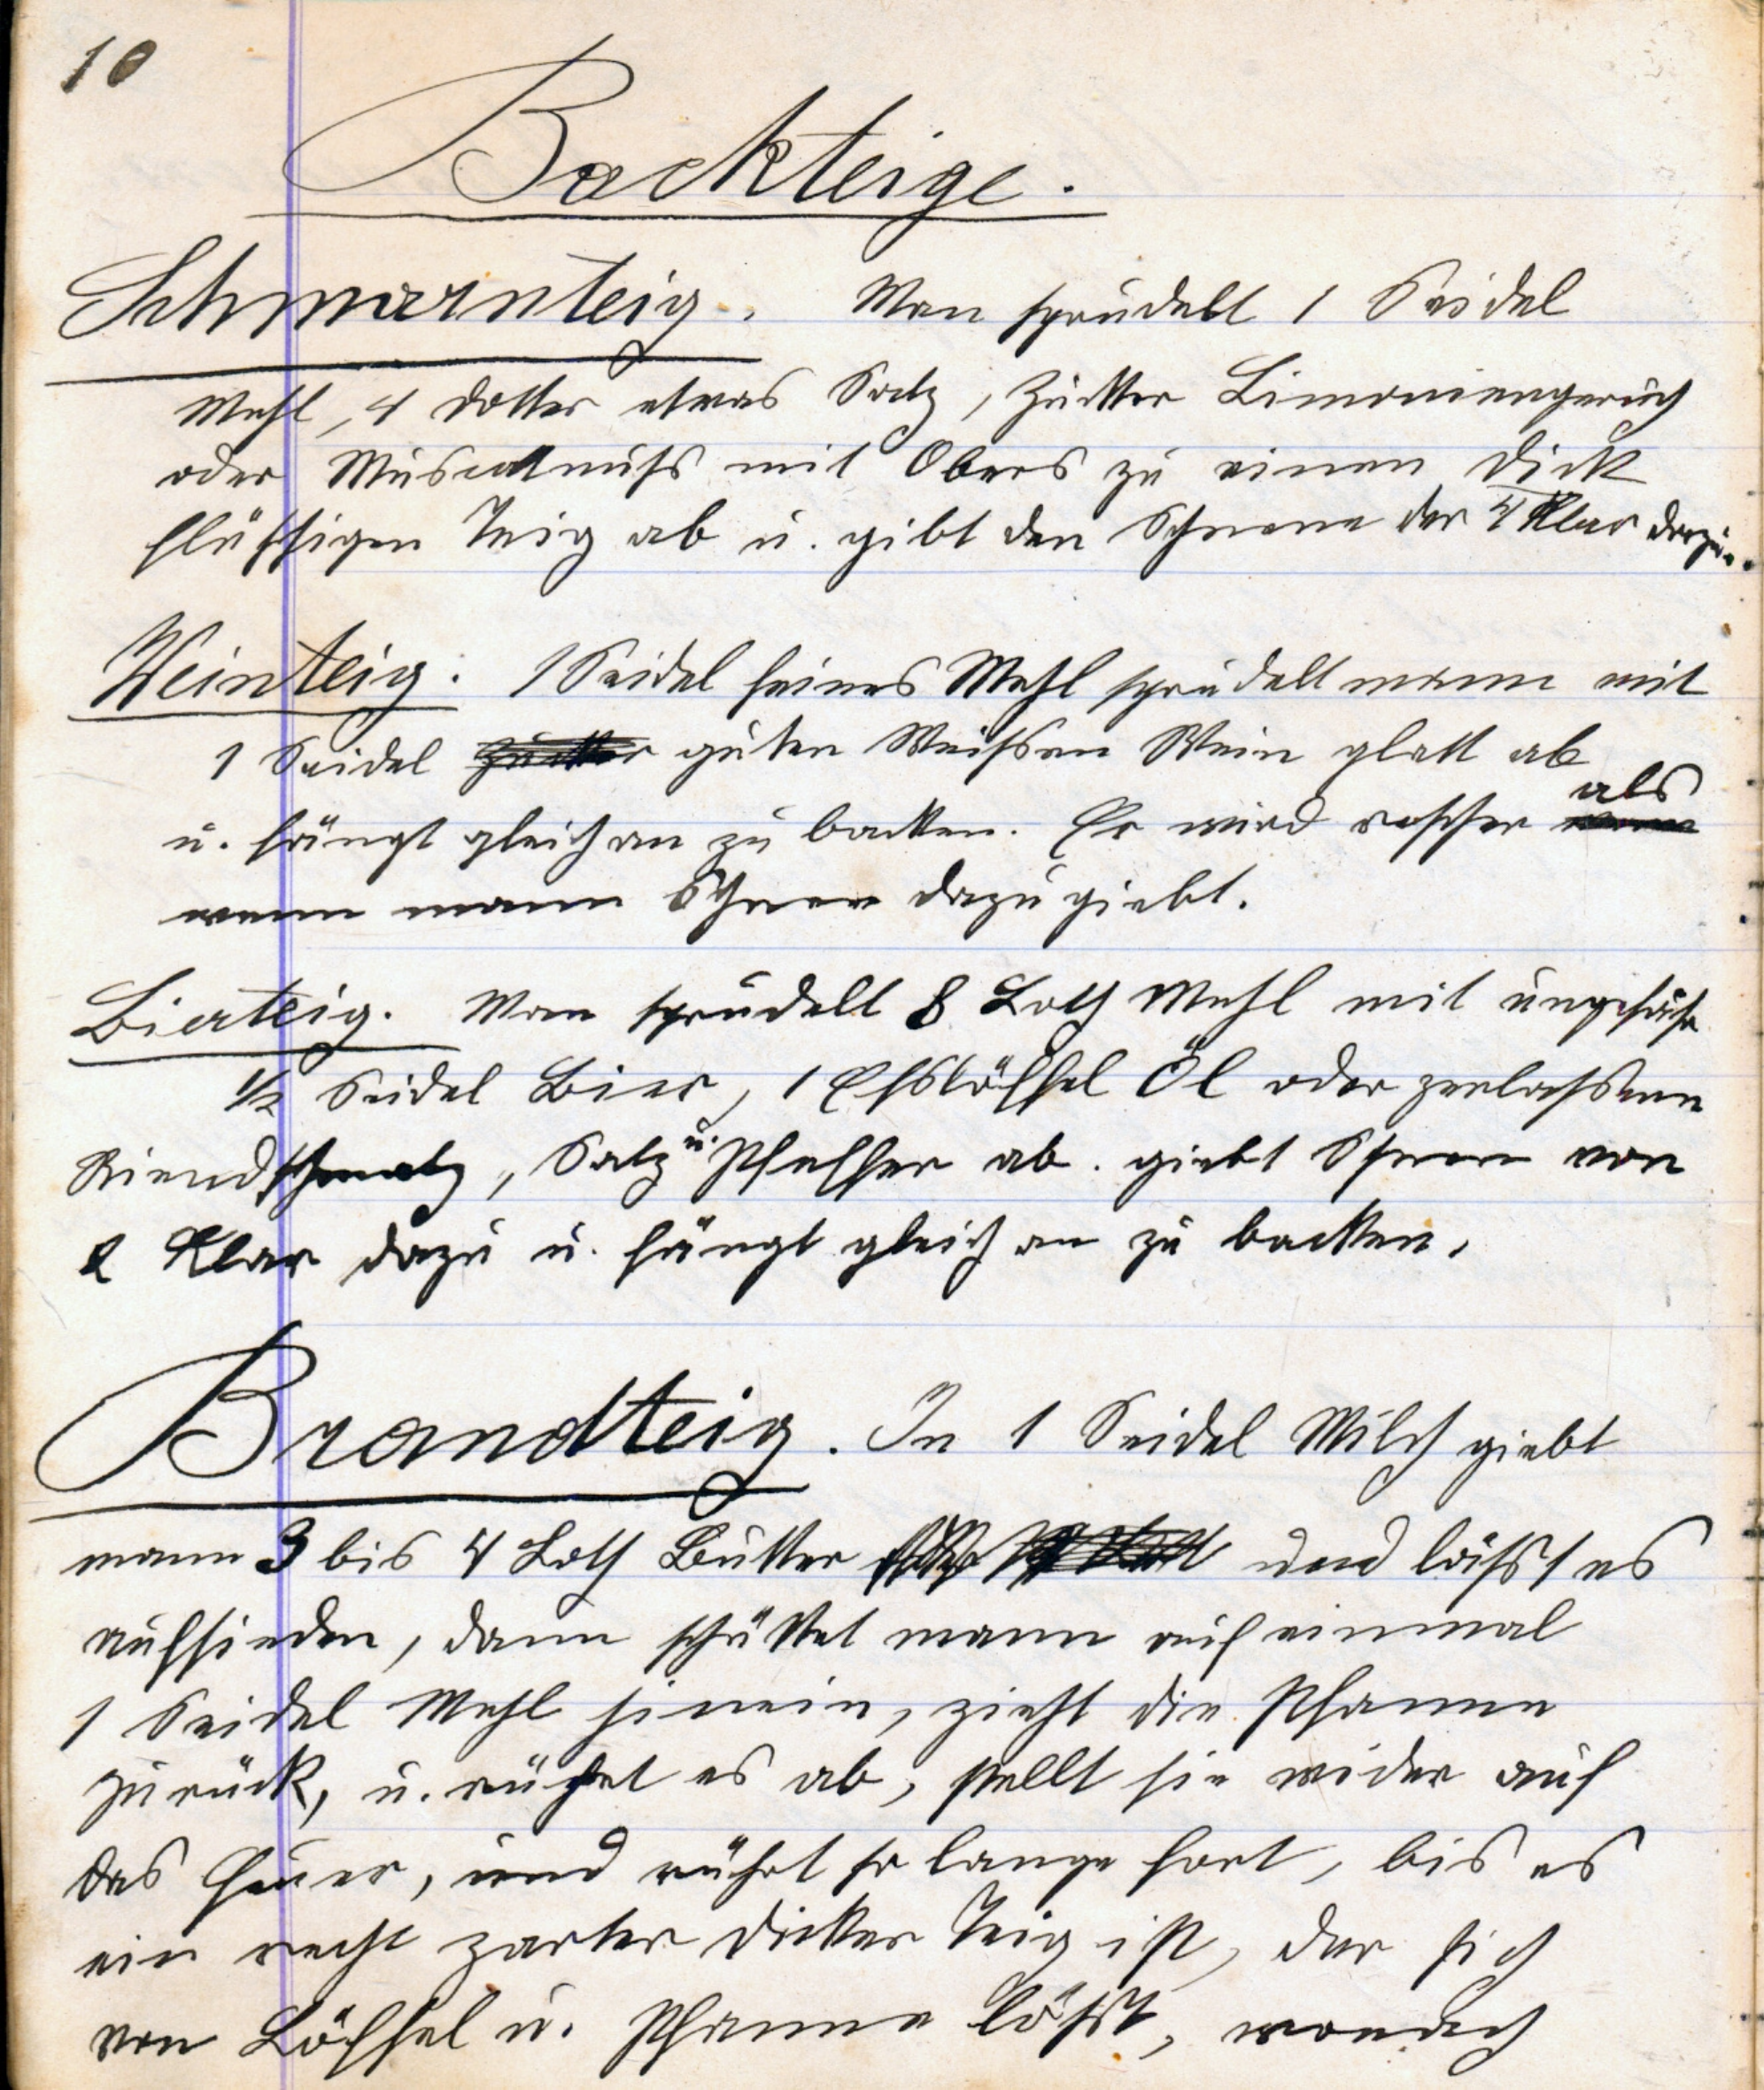 10
Backteige.
Schmarnteig. Man sprudelt 1 Seidel
Mehl, 4 Dotter etwas Salz, Zucker Limoniengeruch
oder Muscatnuß mit Obers zu einen dick
flüssigen Teig ab u. gibt den Schnee der 4 Klar dazu.
Weinteig. 1 Seidel feines Mehl sprudelt mann mit
1 Seidel Zucker guten Weissen Wein glatt ab
u. fängt gleich an zu backen. Er wird rescher als
wenn mann Schnee dazu giebt.
Bierteig. Man sprudelt 8 Loth Mehl mit ungefähr
1/2 Seidel Bier, 1 Esslöffel Öl oder zerlassenen
Riendschmalz, Salz u. Pfeffer ab. giebt Schnee von
2 Klar dazu u. fängt gleich an zu backen.
Brandteig. In 1 Seidel Milch giebt
mann 3 bis 4 Loth Butter und lässt es
aufsieden, dann schüttet mann auf einmal
1 Seidel Mehl hinein, zieht die Pfanne
zurück, u. rührt es ab, stellt sie wider auf
das Feuer, und rührt so lange fort, bis es
ein recht zarter dicker Teig ist, der sich
von Löffel u. Pfanne löst, wonach